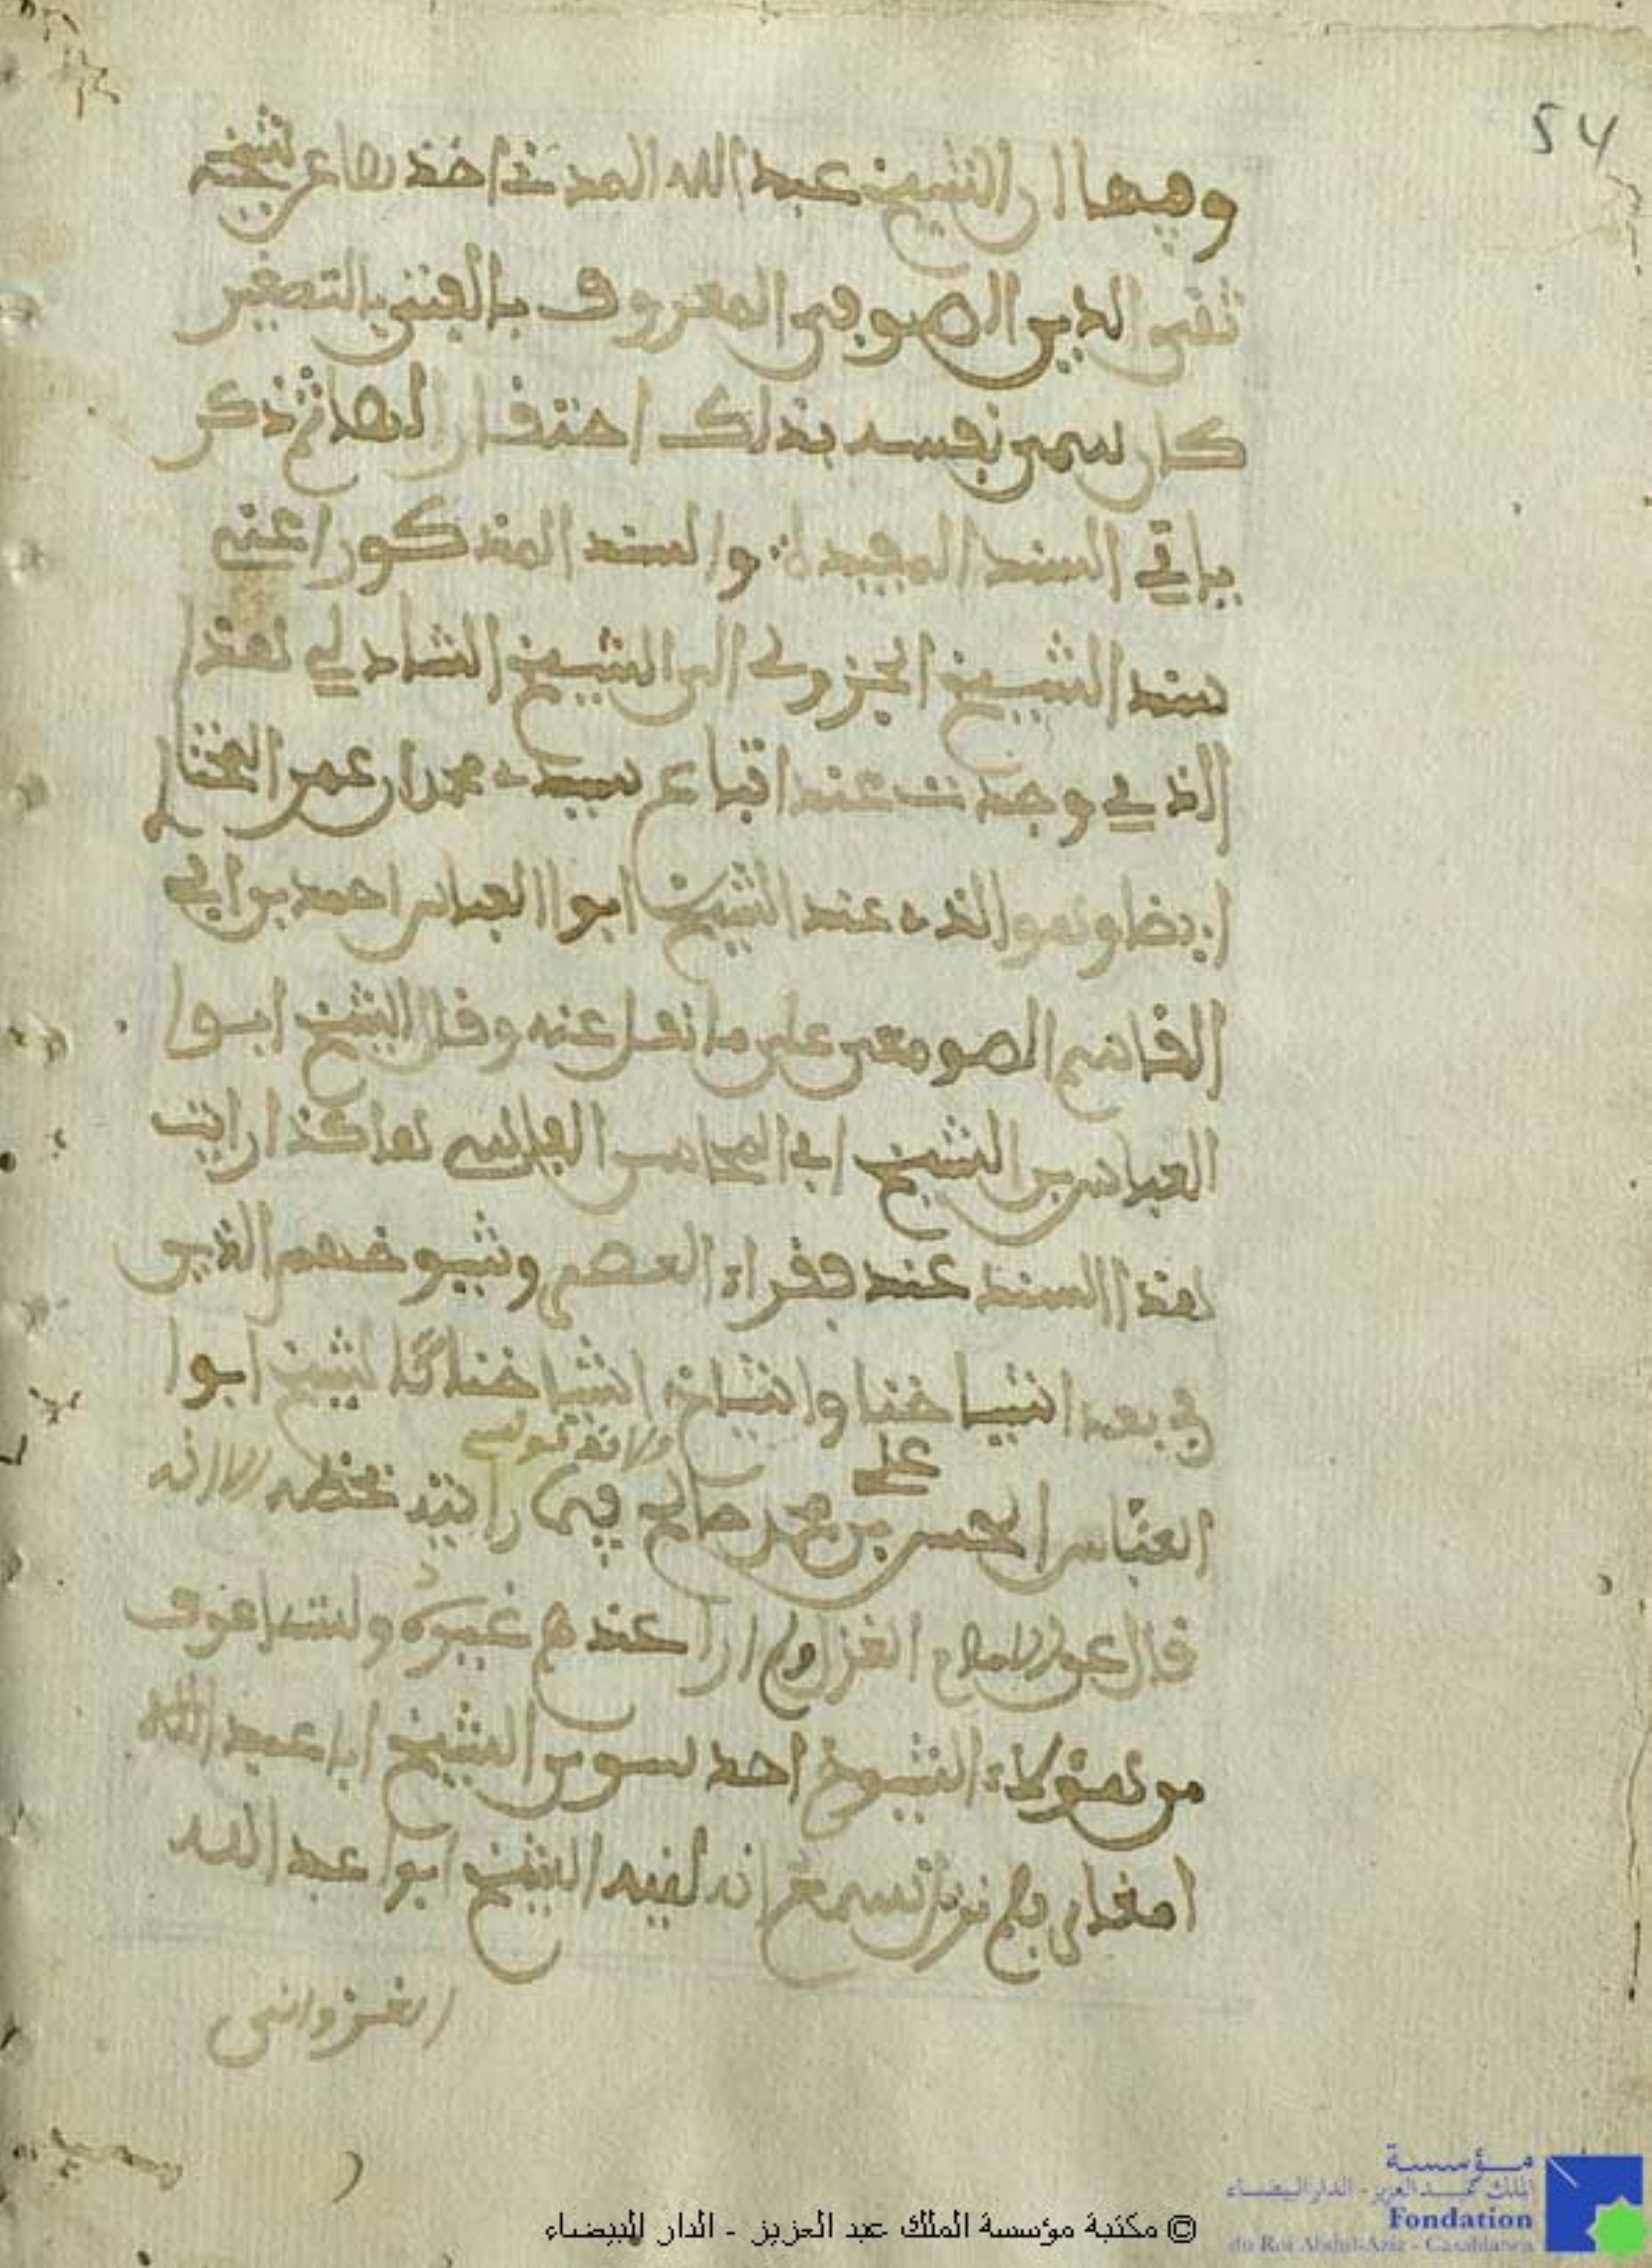 54
وفيها ان الشيخ عبد الله المد اخذ عن شيخه
تقي الدين الصوفي المعروف بالفقير بالتصغير
كان يسمي نفسه بذلك احتقارا لها ثم ذكر
باقي السند المقيد والسند المذكور اعني
سند الشيخ الجزولي الى الشيخ الشاذلي هذا
الذي وجدت عند اتباع سيدي محمد بن عمر المختا
ايضا وهو الذي عند الشيخ ابوا العباس احمد بن ابي
القاسم الصومعي على ما نقل عنه وقال الشيخ ابوا
العباس بن الشيخ ابي المحاسن الفاسي هاكذا رايت
هذا السند عند فقراء العصر وشيوخهم الذين
في بعد اشياخنا واشياخ اشياخنا كالشيخ ابوا
العباس الحسن بن علي محمد صالح فيما رايته بخطه الا انه
قال عن الغزواني ار عندهم غيره ولست اعرف
من هؤلاء الشيوخ احد سوى الشيخ ابا عبد الله
امغاري فلم نزل نسمع انه لقيه الشيخ ابوا عبد الله
الغزواني
© مكتبة مؤسسة الملك عبد العزيز - الدار البيضاء
مؤسسة
الملك عبد العزيز - الدار البيضاء
Fondation
du Roi Abdul-Aziz - Casablanca